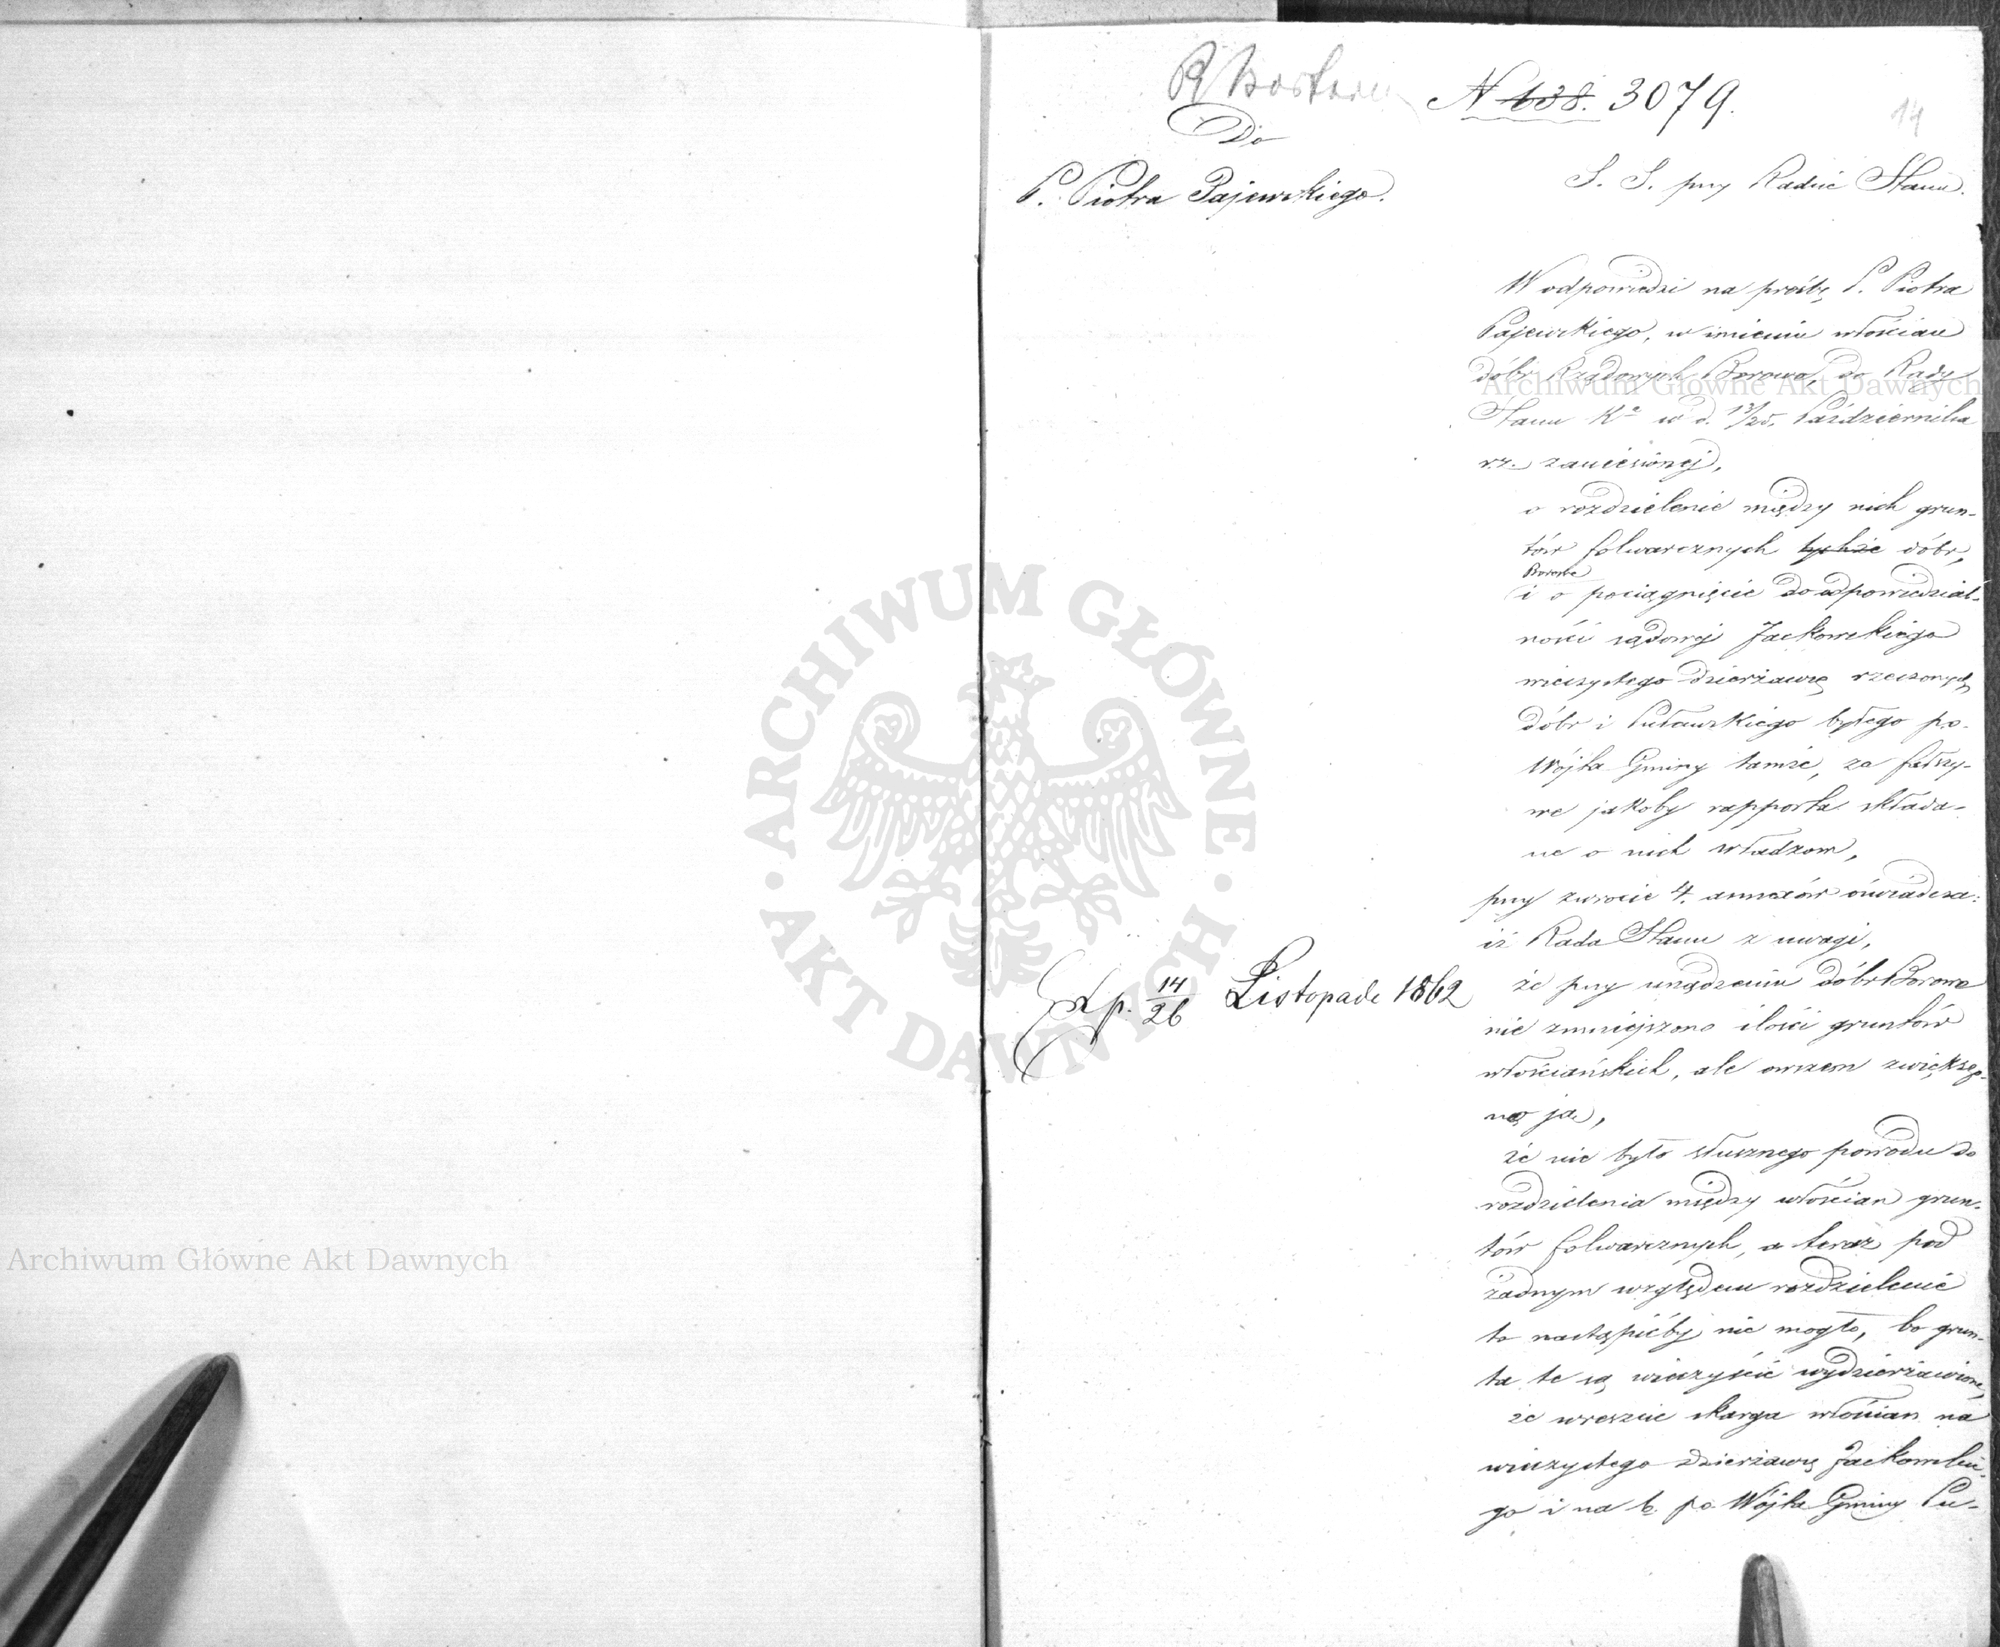 N 638. 3079.
14
Do
P. Piotra Pajewskiego.
S. S. przy Radzie Stanu.
W odpowiedzi na prośbę P. Piotra
Pajewskiego, w imieniu włościan
dóbr Rządowych Borowo, do Rady
Stanu Kr w d. 13/25. Października
r.z. zaniesionej,
o rozdzielenie między nich grun-
tów folwarcznych tychże dóbr,
Borowo
i o pociągnięcie do odpowiedzial-
ności sądowej Jackowskiego
wieczystego dzierżawcę rzeczonych
dóbr i Puławskiego byłego p.o.
Wójta Gminy tamże, za fałszy-
we jakoby rapporta składa-
ne o nich władzom,
przy zwrocie 4. annexów oświadcza:
iż Rada Stanu z uwagi,
że przy urządzeniu dóbr Borowo
nie zmniejszono ilości gruntów
włościańskich, ale owszem zwiększo-
no ją,
że nie było słusznego powodu do
rozdzielenia między włościan grun-
tów folwarcznych, a teraz pod
żadnym względem rozdzielenie
to nastąpićby nie mogło, bo grun-
ta te są wieczyście wydzierżawione,
że wreszcie skarga włościan na
wieczystego dzierżawcę Jackowskie-
go i na b. p.o. Wójta Gminy Pu-
Exp. 14/26 Listopada 1862
Archiwum Główne Akt Dawnych
Archiwum Główne Akt Dawnych
ARCHIWUM GŁÓWNE AKT DAWNYCH